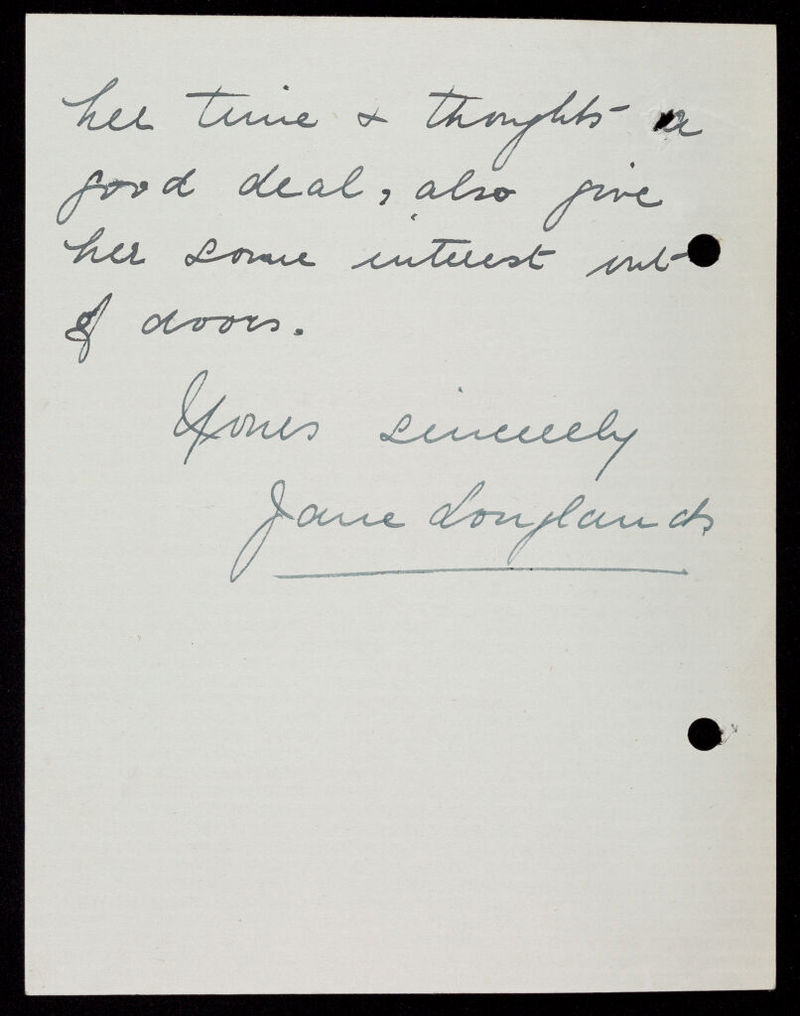 her time & thoughts a
good deal, also give
her some interest out
of doors.
Yours sincerely
Jane Longlands